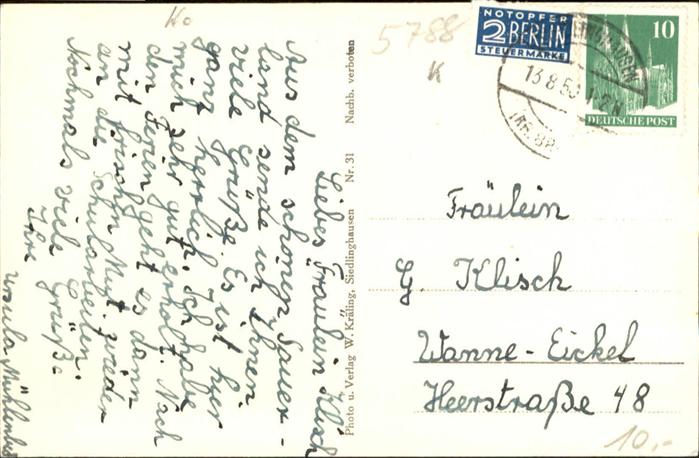 Ko
5788
K
NOTOPFER
2 BERLIN
STEUERMARKE
10
DEUTSCHE POST
13.8.50
Liebes Fräulein Klisch
Aus dem schönen Sauer-
land sende ich Ihnen
viele Grüße. Es ist hier
ganz herrlich. Ich habe
mich sehr gut erholt. Nach
den Ferien geht es dann
mit frischem Mut wieder
an die Schularbeiten.
Nochmals viele Grüße
Ihre
Ursula
Photo u. Verlag W. Kräling, Siedlinghausen Nr. 31 Nachb. verboten
Fräulein
G. Klisch
Wanne-Eickel
Heerstraße 48
10,-